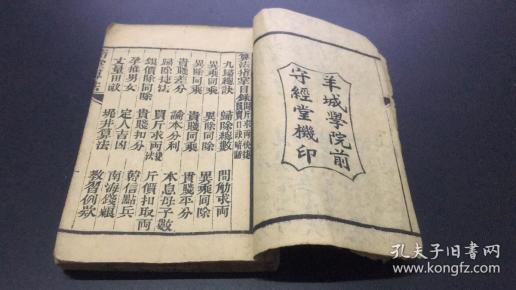 羊城學院前
守經堂機印
算法指掌目錄
九歸總訣 歸除總數 問觔求兩
異乘同除 異除同除 異乘同除
異除同乘 貴賤同乘 貴賤平分
貴賤差分 論本分利 本息母子
歸除捷法 斤求兩法 斤價扣取兩
銀價除同除 貴賤扣分 韓信點兵
孕推男女 定人吉凶 南海錢糧
丈量田畝 堀井算法 教習例欵
孔夫子旧书网
www.kongfz.com